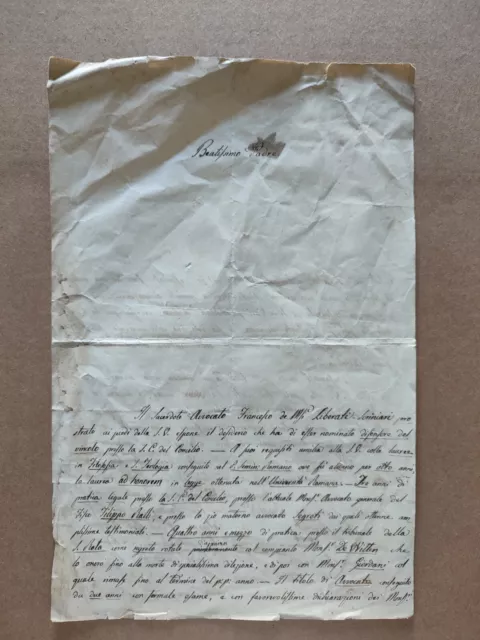 Beatissimo Padre
Il Sacerdote Avvocato Francesco de M.si Liberati pro
strato ai piedi della S.V. espone il desiderio che ha di esser nominato difensore del
vincolo presso la S.C. del Concilio. — A però requisiti umilia alla S.V. colla laurea
in Filosofia e S. Teologia conseguite ed il Seminario Romano ove fu alunno per otto anni,
la laurea ad honorem in legge ottenuta nell'Università Romana. — anni di
pratica legale presso la S.C. del Concilio, presso l'attuale Mons.r Avvocato generale del
Filippo e presso lo zio materno avvocato dei quali ottenne am
plissime testimonianze. — Quattro anni e mezzo di pratica presso il tribunale della
S. Rota come segreto votale al compianto Mons.r De Witten che
lo onorò fino alla morte di specialissima dilezione, e di poi con Mons.r Giordani al
quale rimase fino al termine del p.p. anno — Il titolo di Avvocato conseguito
da due anni con formale esame, e con favorevolissime dichiarazioni dei Mons.ri